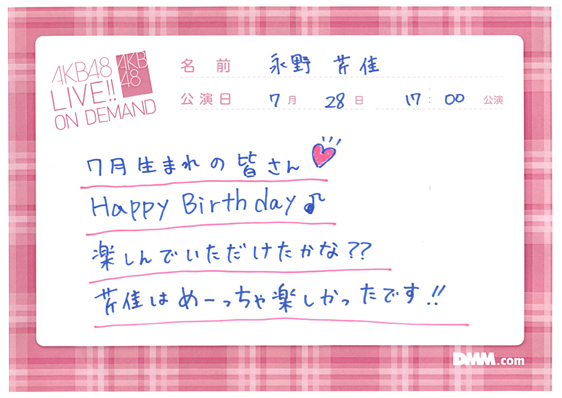 AKB48
LIVE!!
ON DEMAND
AKB
48
名前 永野 芹佳
公演日 7月 28日 17:00 公演
7月生まれの皆さん
Happy Birthday♪
楽しんでいただけたかな??
芹佳はめーっちゃ楽しかったです!!
DMM.com